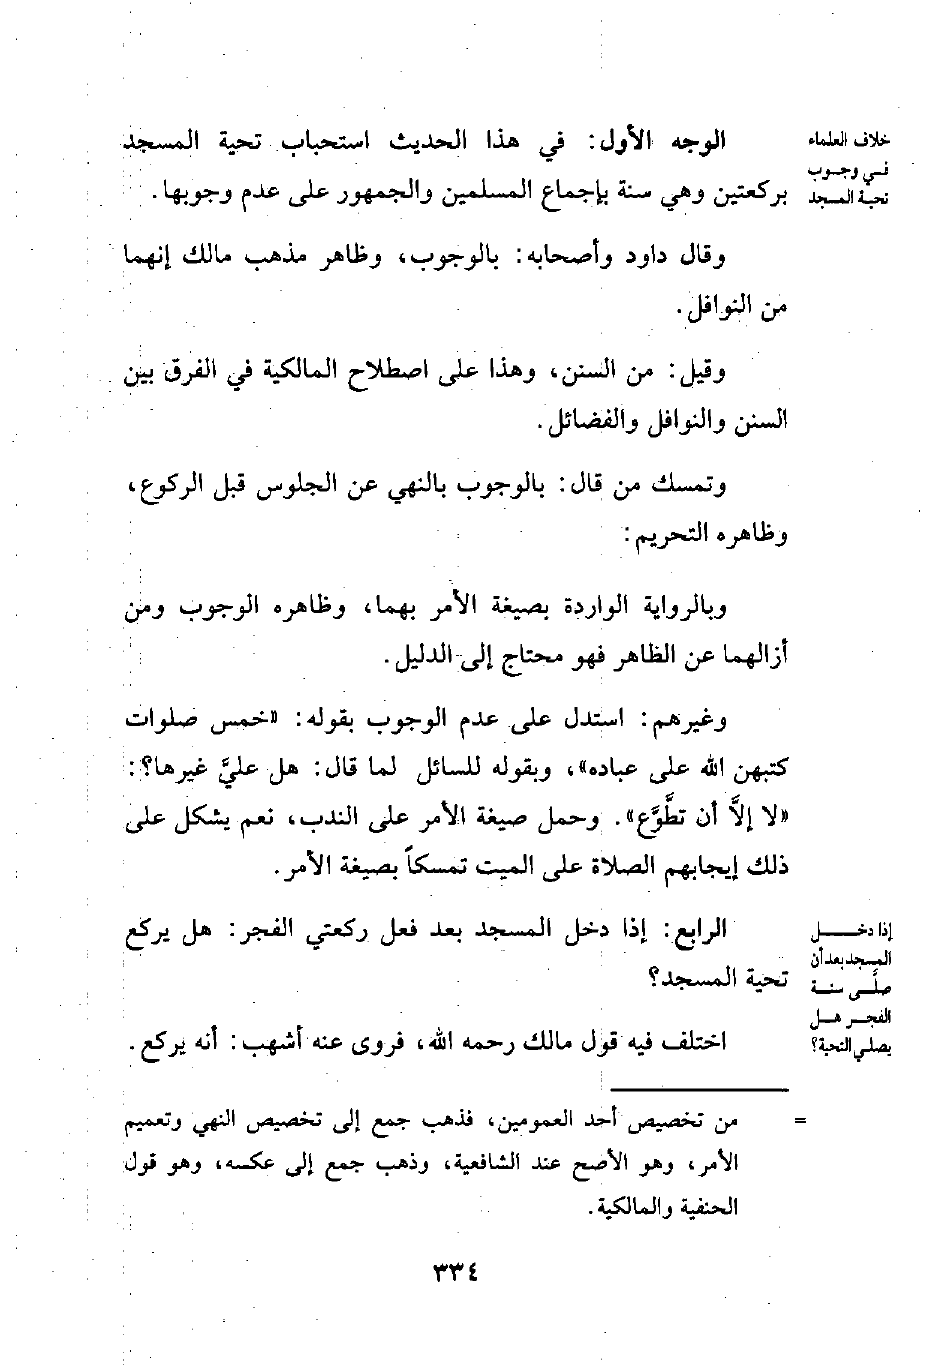 خلاف العلماء
في وجوب
تحية المسجد
الوجه الأول: في هذا الحديث استحباب تحية المسجد
بركعتين وهي سنة بإجماع المسلمين والجمهور على عدم وجوبها.
وقال داود وأصحابه: بالوجوب، وظاهر مذهب مالك إنهما
من النوافل.
وقيل: من السنن، وهذا على اصطلاح المالكية في الفرق بين
السنن والنوافل والفضائل.
وتمسك من قال: بالوجوب بالنهي عن الجلوس قبل الركوع،
وظاهره التحريم:
وبالرواية الواردة بصيغة الأمر بهما، وظاهره الوجوب ومن
أزالهما عن الظاهر فهو محتاج إلى الدليل.
وغيرهم: استدل على عدم الوجوب بقوله: «خمس صلوات
كتبهن الله على عباده»، وبقوله للسائل لما قال: هل عليَّ غيرها؟:
«لا إلاَّ أن تطَّوَّع». وحمل صيغة الأمر على الندب، نعم يشكل على
ذلك إيجابهم الصلاة على الميت تمسكاً بصيغة الأمر.
إذا دخل
المسجد بعد أن
صلَّى سنة
الفجر هل
يصلي التحية؟
الرابع: إذا دخل المسجد بعد فعل ركعتي الفجر: هل يركع
تحية المسجد؟
اختلف فيه قول مالك رحمه الله، فروى عنه أشهب: أنه يركع.
= من تخصيص أحد العمومين، فذهب جمع إلى تخصيص النهي وتعميم
الأمر، وهو الأصح عند الشافعية، وذهب جمع إلى عكسه، وهو قول
الحنفية والمالكية.
٣٣٤